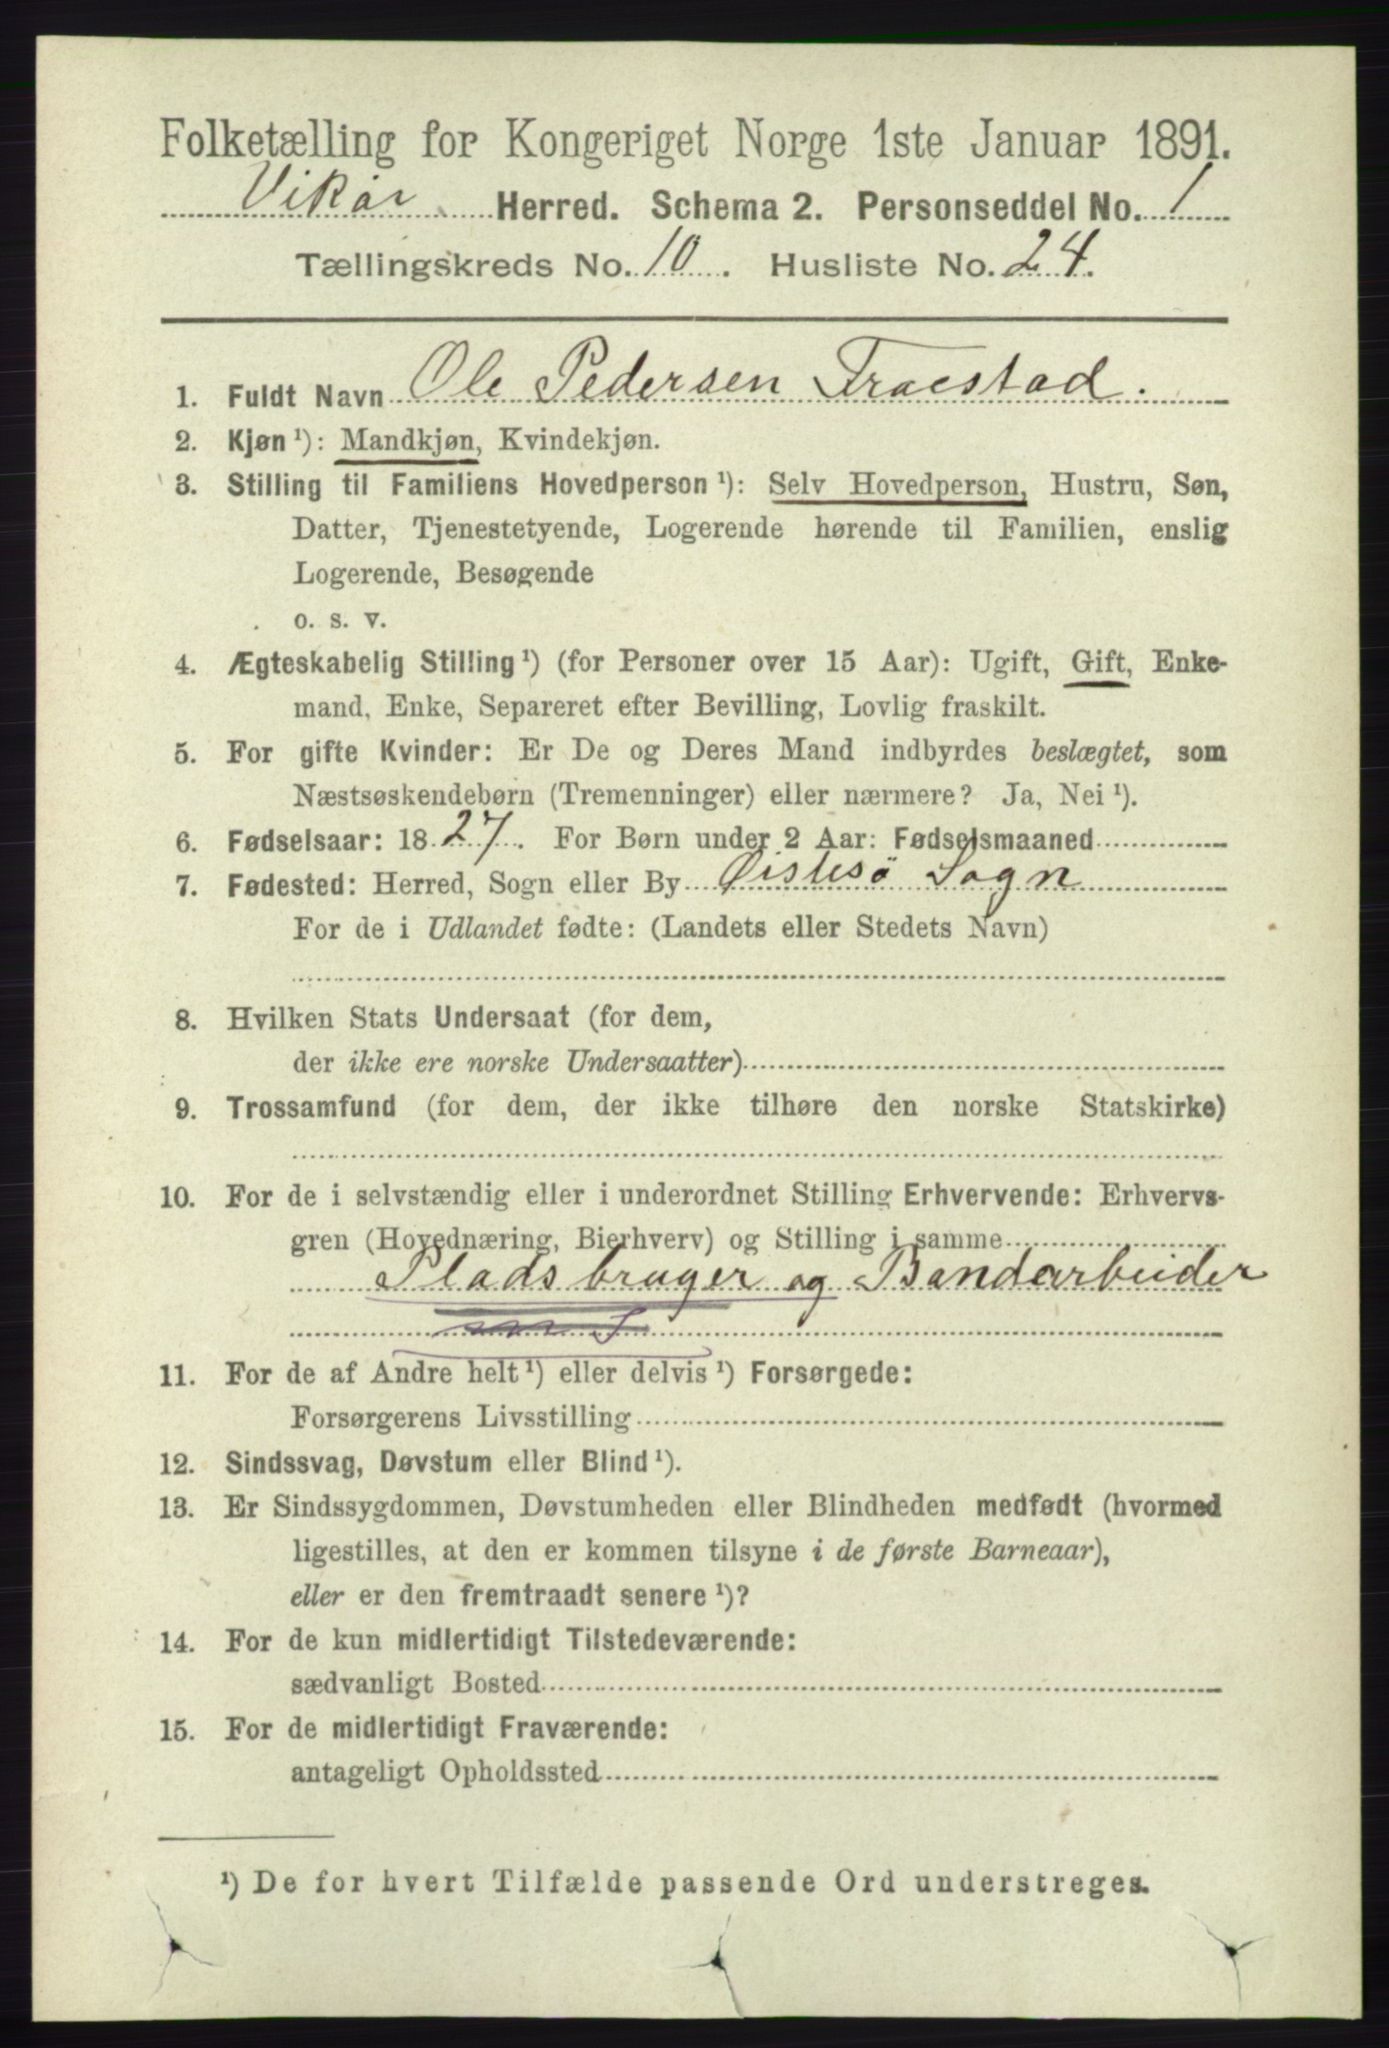 Folketælling for Kongeriget Norge 1ste Januar 1891.
Vikør Herred. Schema 2. Personseddel No. 1
Tællingskreds No. 10. Husliste No. 24.
1. Fuldt Navn Ole Pedersen Traestad.
2. Kjøn ¹): Mandkjøn, Kvindekjøn.
3. Stilling til Familiens Hovedperson ¹): Selv Hovedperson, Hustru, Søn,
Datter, Tjenestetyende, Logerende hørende til Familien, enslig
Logerende, Besøgende
o. s. v.
4. Ægteskabelig Stilling ¹) (for Personer over 15 Aar): Ugift, Gift, Enke-
mand, Enke, Separeret efter Bevilling, Lovlig fraskilt.
5. For gifte Kvinder: Er De og Deres Mand indbyrdes beslægtet, som
Næstsøskendebørn (Tremenninger) eller nærmere? Ja, Nei ¹).
6. Fødselsaar: 1827. For Børn under 2 Aar: Fødselsmaaned
7. Fødested: Herred, Sogn eller By Øistesö Sogn
For de i Udlandet fødte: (Landets eller Stedets Navn)
8. Hvilken Stats Undersaat (for dem,
der ikke ere norske Undersaatter)
9. Trossamfund (for dem, der ikke tilhøre den norske Statskirke)
10. For de i selvstændig eller i underordnet Stilling Erhvervende: Erhvervs-
gren (Hovednæring, Bierhverv) og Stilling i samme
Pladsbruger og Bandarbeider
11. For de af Andre helt ¹) eller delvis ¹) Forsørgede:
Forsørgerens Livsstilling
12. Sindssvag, Døvstum eller Blind ¹).
13. Er Sindssygdommen, Døvstumheden eller Blindheden medfødt (hvormed
ligestilles, at den er kommen tilsyne i de første Barneaar),
eller er den fremtraadt senere ¹)?
14. For de kun midlertidigt Tilstedeværende:
sædvanligt Bosted
15. For de midlertidigt Fraværende:
antageligt Opholdssted
¹) De for hvert Tilfælde passende Ord understreges.